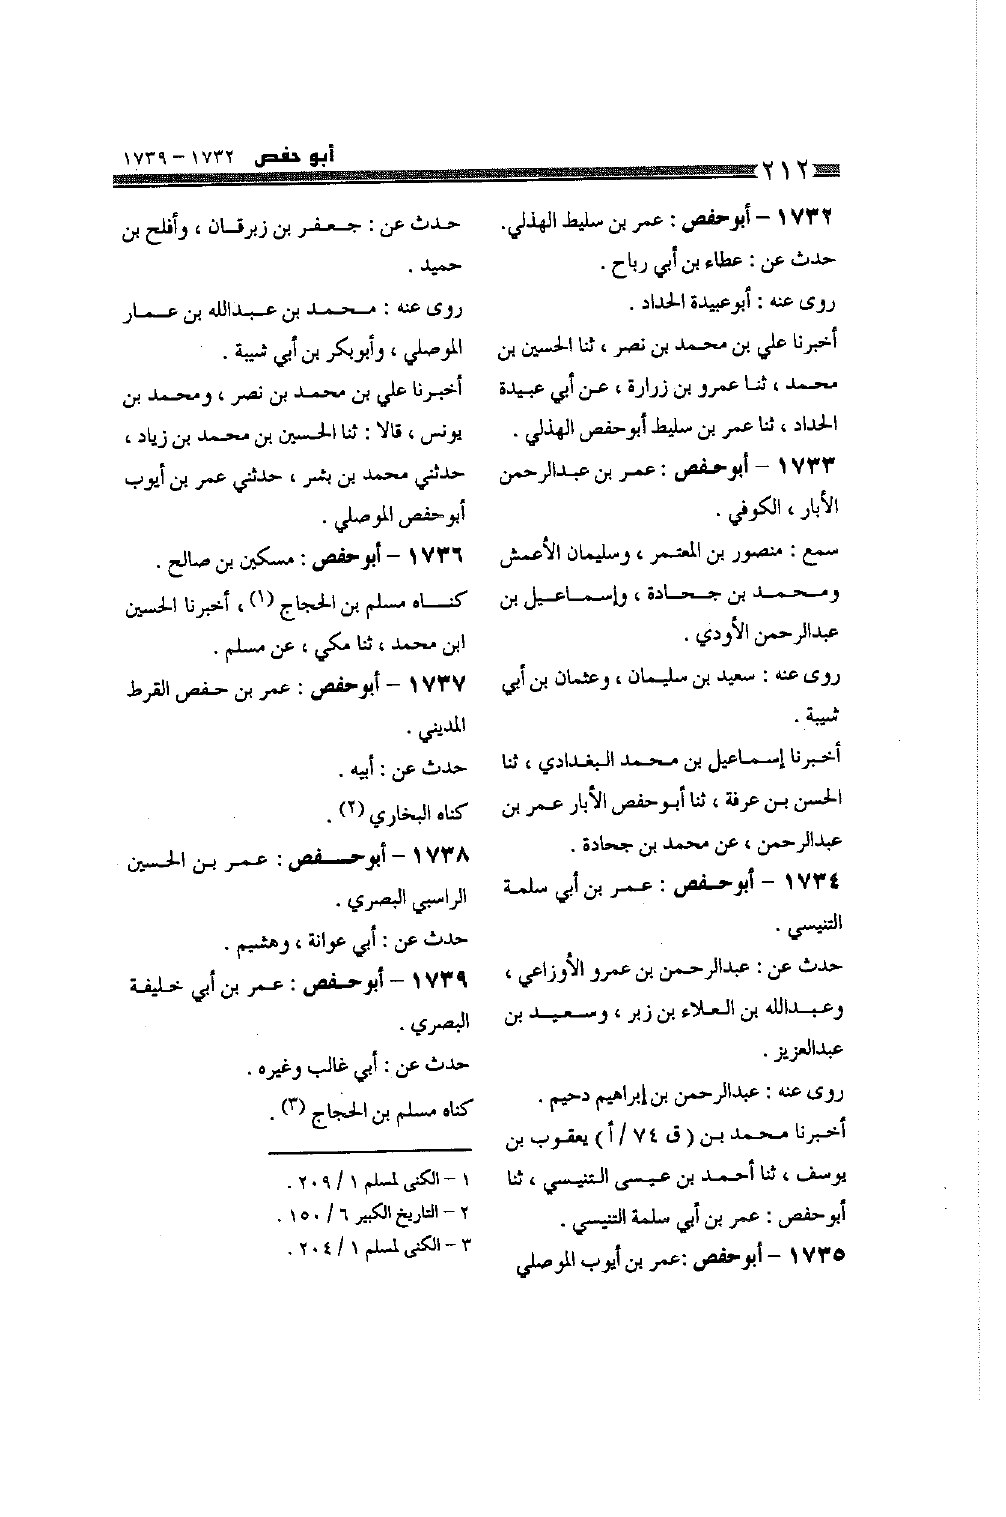 أبو حفص ١٧٣٢ - ١٧٣٩
٢١٢
١٧٣٢ - أبوحفص : عمر بن سليط الهذلي.
حدث عن : عطاء بن أبي رباح .
روى عنه : أبوعبيدة الحداد .
أخبرنا علي بن محمد بن نصر ، ثنا الحسين بن
محمد ، ثنا عمرو بن زرارة ، عن أبي عبيدة
الحداد ، ثنا عمر بن سليط أبوحفص الهذلي .
١٧٣٣ - أبوحفص : عمر بن عبدالرحمن
الأبار ، الكوفي .
سمع : منصور بن المعتمر ، وسليمان الأعمش
ومحمد بن جحادة ، وإسماعيل بن
عبدالرحمن الأودي .
روى عنه : سعيد بن سليمان ، وعثمان بن أبي
شيبة .
أخبرنا إسماعيل بن محمد البغدادي ، ثنا
الحسن بن عرفة ، ثنا أبوحفص الأبار عمر بن
عبدالرحمن ، عن محمد بن جحادة .
١٧٣٤ - أبوحفص : عمر بن أبي سلمة
التنيسي .
حدث عن : عبدالرحمن بن عمرو الأوزاعي ،
وعبدالله بن العلاء بن زبر ، وسعيد بن
عبدالعزيز .
روى عنه : عبدالرحمن بن إبراهيم دحيم .
أخبرنا محمد بن ( ق ٧٤ / أ ) يعقوب بن
يوسف ، ثنا أحمد بن عيسى التنيسي ، ثنا
أبوحفص : عمر بن أبي سلمة التنيسي .
١٧٣٥ - أبوحفص :عمر بن أيوب الموصلي
حدث عن : جعفر بن زبرقان ، وأفلح بن
حميد .
روى عنه : محمد بن عبدالله بن عمار
الموصلي ، وأبوبكر بن أبي شيبة .
أخبرنا علي بن محمد بن نصر ، ومحمد بن
يونس ، قالا : ثنا الحسين بن محمد بن زياد ،
حدثني محمد بن بشر ، حدثني عمر بن أيوب
أبوحفص الموصلي .
١٧٣٦ - أبوحفص : مسكين بن صالح .
كناه مسلم بن الحجاج (١) ، أخبرنا الحسين
ابن محمد ، ثنا مكي ، عن مسلم .
١٧٣٧ - أبوحفص : عمر بن حفص القرط
المديني .
حدث عن : أبيه .
كناه البخاري (٢) .
١٧٣٨ - أبوحفص : عمر بن الحسين
الراسبي البصري .
حدث عن : أبي عوانة ، وهشيم .
١٧٣٩ - أبوحفص : عمر بن أبي خليفة
البصري .
حدث عن : أبي غالب وغيره .
كناه مسلم بن الحجاج (٣) .
١ - الكنى لمسلم ١ / ٢٠٩ .
٢ - التاريخ الكبير ٦ / ١٥٠ .
٣ - الكنى لمسلم ١ / ٢٠٤ .